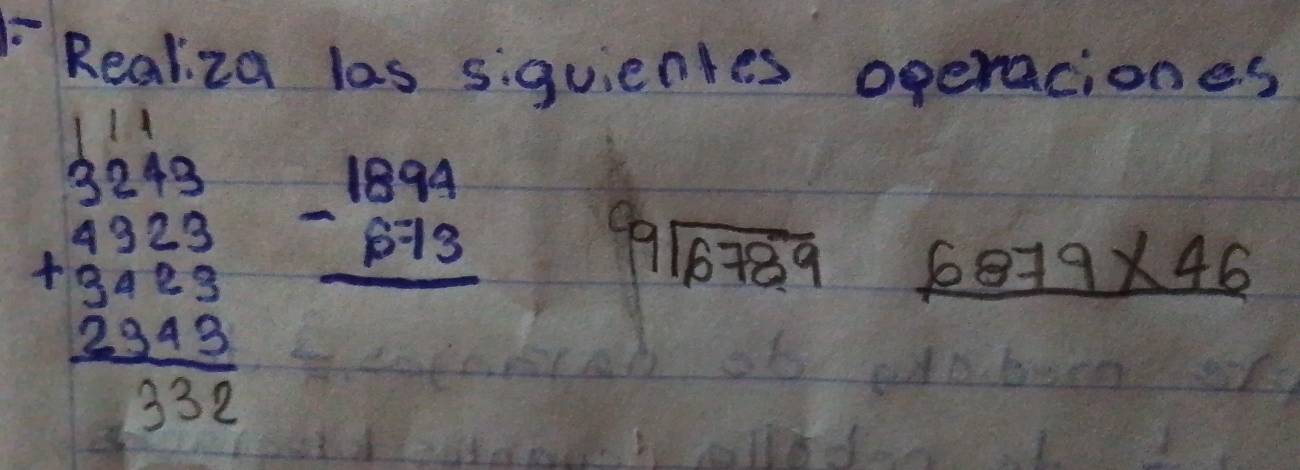 1.- Realiza las siguientes operaciones
1 1 1
3243
4323
+ 3423
2343
332
1894
- 673
99 6789
6879 X 46